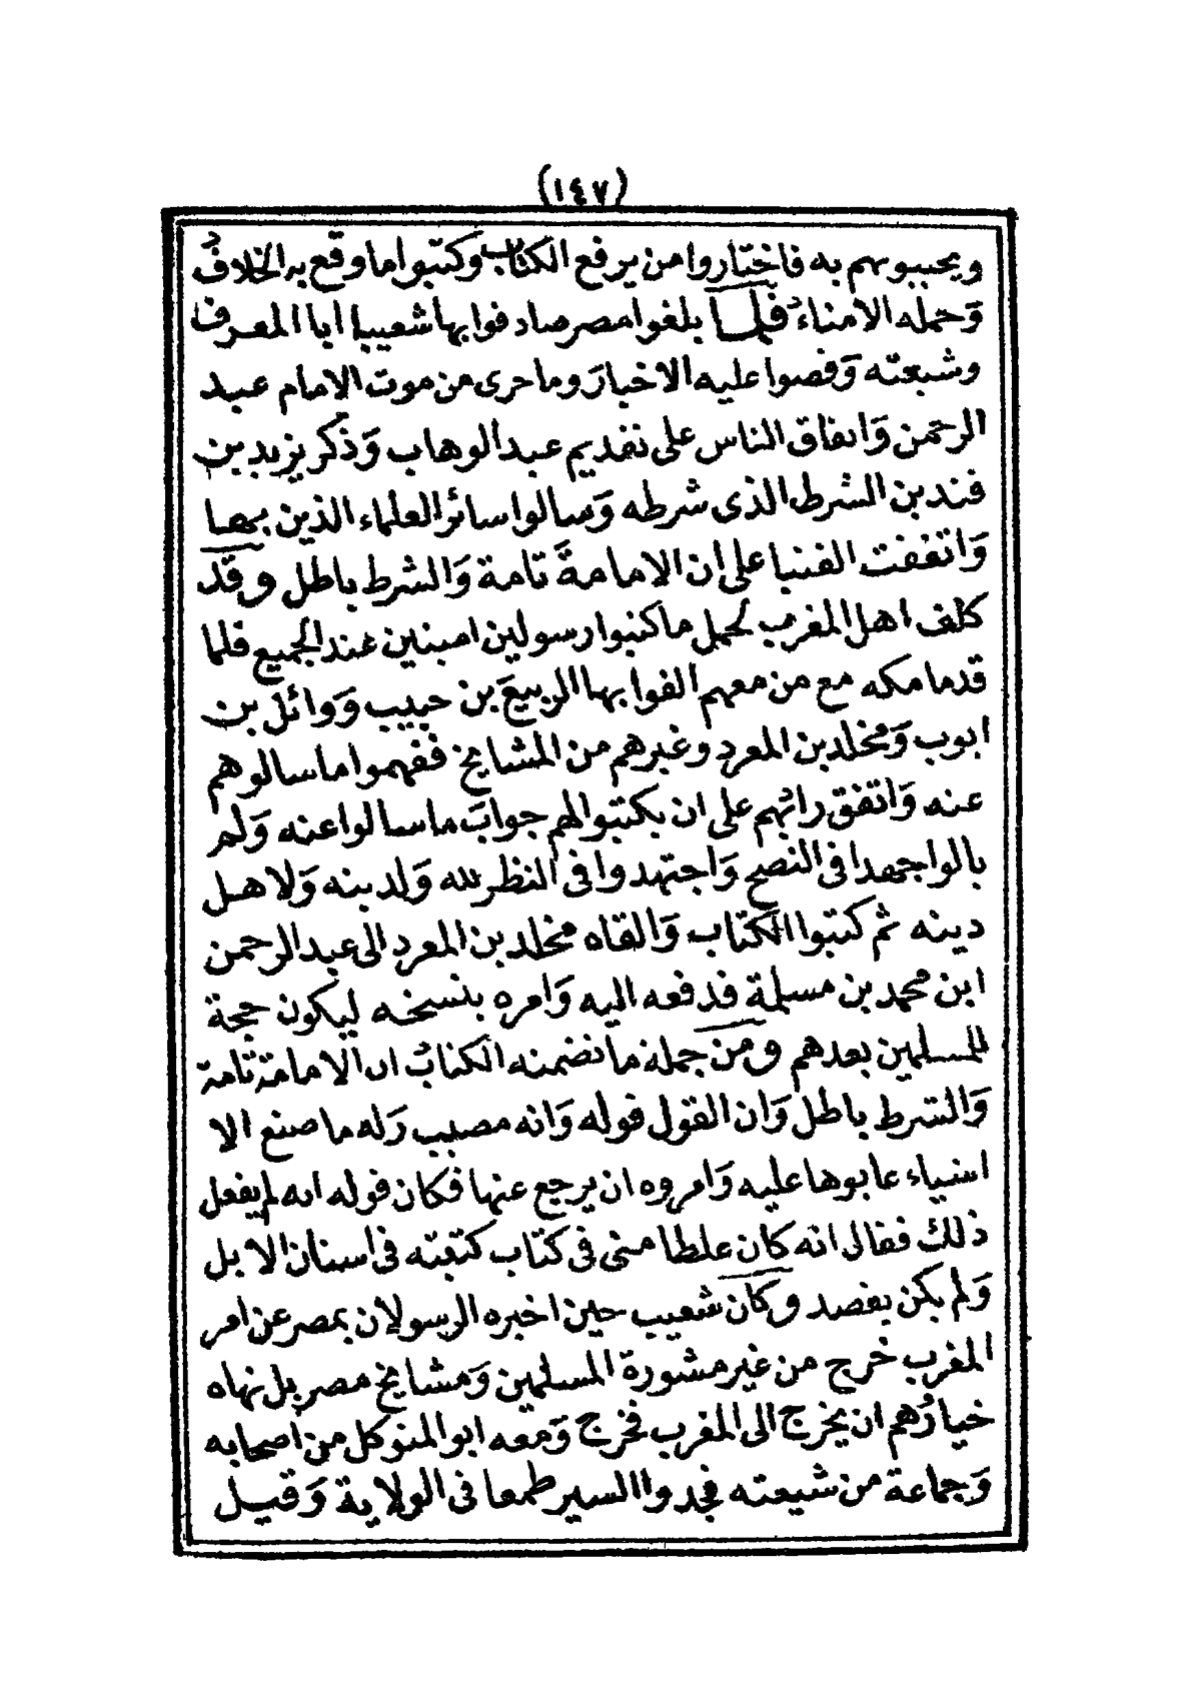 (١٤٧)
ويجيبونهم به فاختاروا من يرفع الكتاب وكتبوا ما وقع به الخلاف
وحمله الامناء فلما بلغوا مصر صادفوا بها شعيبا ابا المعرف
وشيعته وقصوا عليه الاخبار وما جرى من موت الامام عبد
الرحمن واتفاق الناس على تقديم عبد الوهاب وذكر يزيد بن
فندين الشرط الذى شرطه وسالوا سائر العلماء الذين بها
واتفقت الفتيا على ان الامامة تامة والشرط باطل وقد
كلف اهل المغرب لحمل ما كتبوا رسولين امينين عند الجميع فلما
قدما مكه مع من معهم الفوا بها الربيع بن حبيب ووائل بن
ايوب ومخلد بن المعرد وغيرهم من المشايخ ففهموا ما سالوهم
عنه واتفق رائهم على ان يكتبوا لهم جواب ما سالوا عنه ولم
يالوا جهدا فى النصح واجتهدوا فى النظر لله ولدينه ولاهل
دينه ثم كتبوا الكتاب والقاه مخلد بن المعرد الى عبد الرحمن
ابن محمد بن مسلمة فدفعه اليه وامره بنسخه ليكون حجة
للمسلمين بعدهم ومن جملة ما تضمنه الكتاب ان الامامة تامة
والشرط باطل وان القول قوله وانه مصيب وله ما صنع الا
اشياء عابوها عليه وامروه ان يرجع عنها فكان قوله انه لم يفعل
ذلك فقال انه كان غلطا منى فى كتاب كتبته فى اسنان الابل
ولم يكن بقصد وكان شعيب حين اخبره الرسولان بمصر عن امر
المغرب خرج من غير مشورة المسلمين ومشايخ مصر بل نهاه
خيارهم ان يخرج الى المغرب فخرج ومعه ابو المتوكل من اصحابه
وجماعة من شيعته فجدوا السير طمعا فى الولاية وقيل